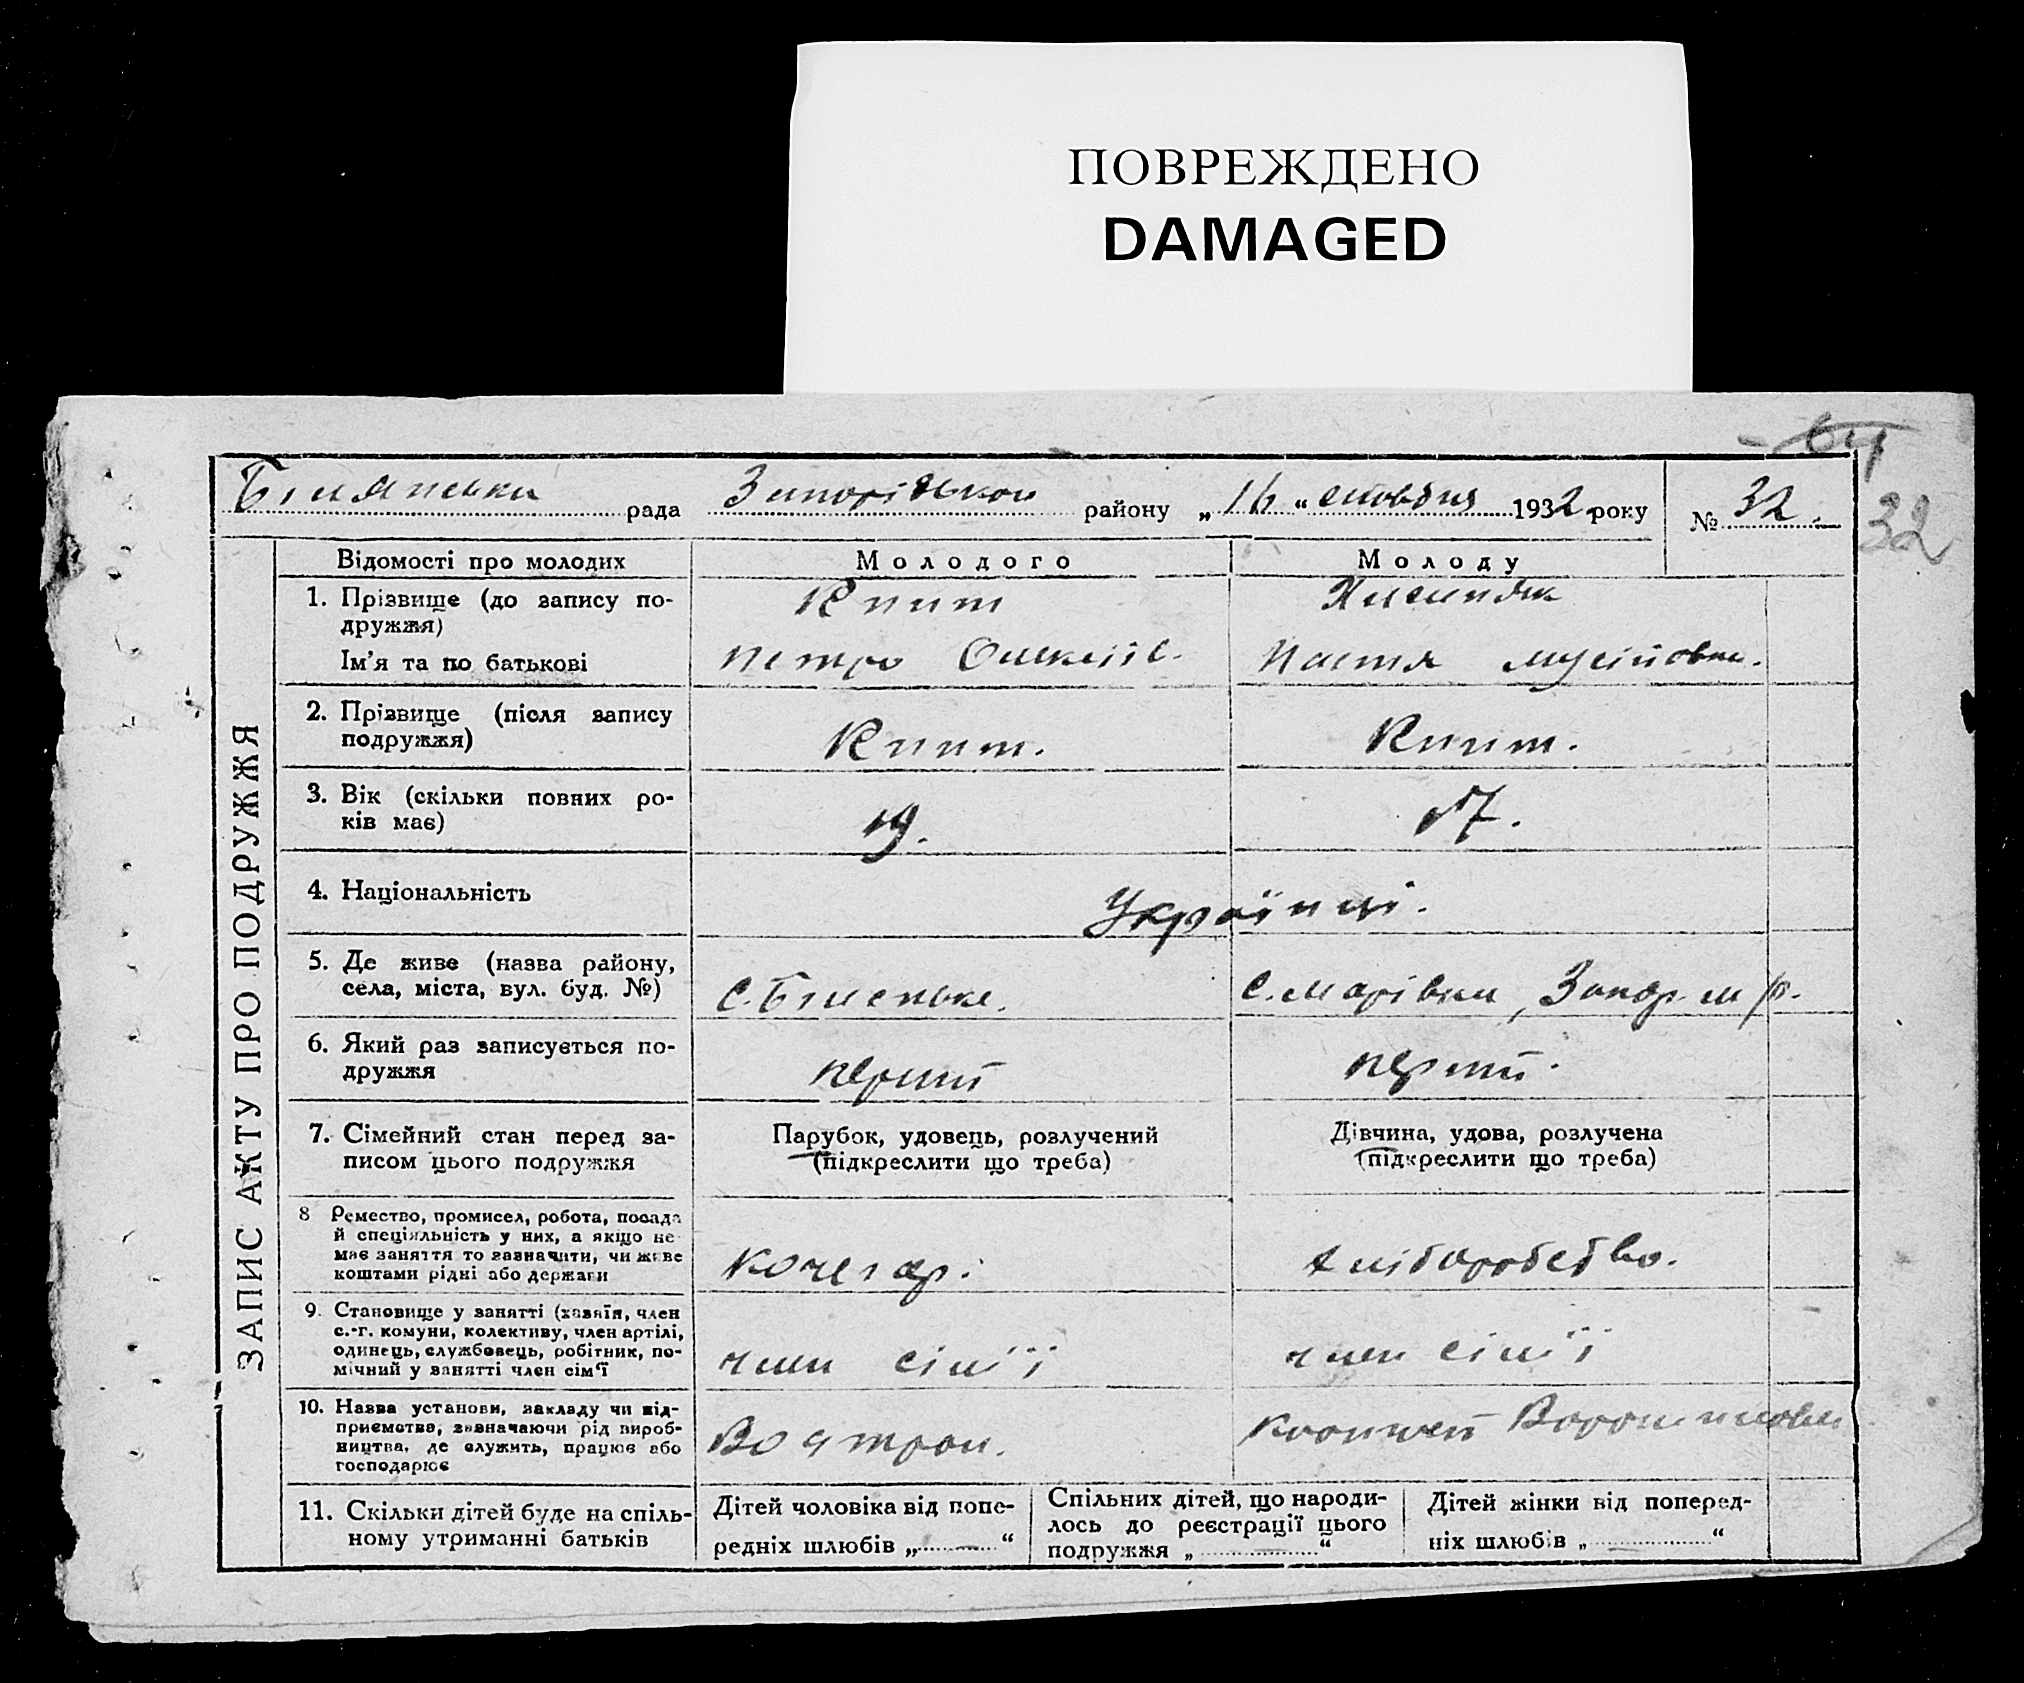 ПОВРЕЖДЕНО
DAMAGED
рада району „16“ 1932 року № 32.
32
ЗАПИС АКТУ ПРО ПОДРУЖЖЯ
Відомості про молодих Молодого Молоду
1. Прізвище (до запису по-
дружжя)
Ім'я та по батькові
Петро Олексіїв. Настя Мусіївна.
2. Прізвище (після запису
подружжя)
3. Вік (скільки повних ро-
ків має)
19. 17.
4. Національність
Українці.
5. Де живе (назва району,
села, міста, вул. буд. №)
6. Який раз записується по-
дружжя
перший перший.
7. Сімейний стан перед за-
писом цього подружжя
Парубок, удовець, розлучений
(підкреслити що треба)
Дівчина, удова, розлучена
(підкреслити що треба)
8 Ремество, промисел, робота, посада
й спеціяльність у них, а якщо не
має заняття то зазначити, чи живе
коштами рідні або держави
Кочегар.
9. Становище у занятті (хазяїн, член
с.-г. комуни, колективу, член артілі,
одинець, службовець, робітник, по-
мічний у занятті член сім'ї
член сім'ї член сім'ї
10. Назва установи, закладу чи під-
приємства, зазначаючи рід вироб-
ництва, де служить, працює або
господарює
11. Скільки дітей буде на спіль-
ному утриманні батьків
Дітей чоловіка від попе-
редніх шлюбів „ — “
Спільних дітей, що народи-
лось до реєстрації цього
подружжя „ “
Дітей жінки від поперед-
ніх шлюбів „ — “